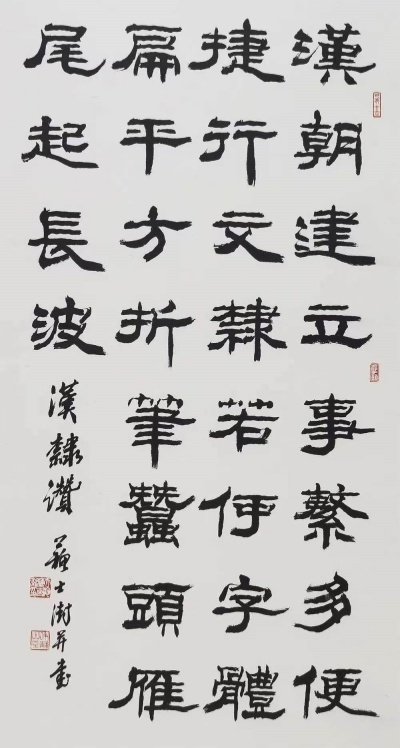 漢朝建立事繫多便
捷行文隸若何字體
扁平方折筆蠶頭雁
尾起長波
漢隸讚 蘇士澍并書